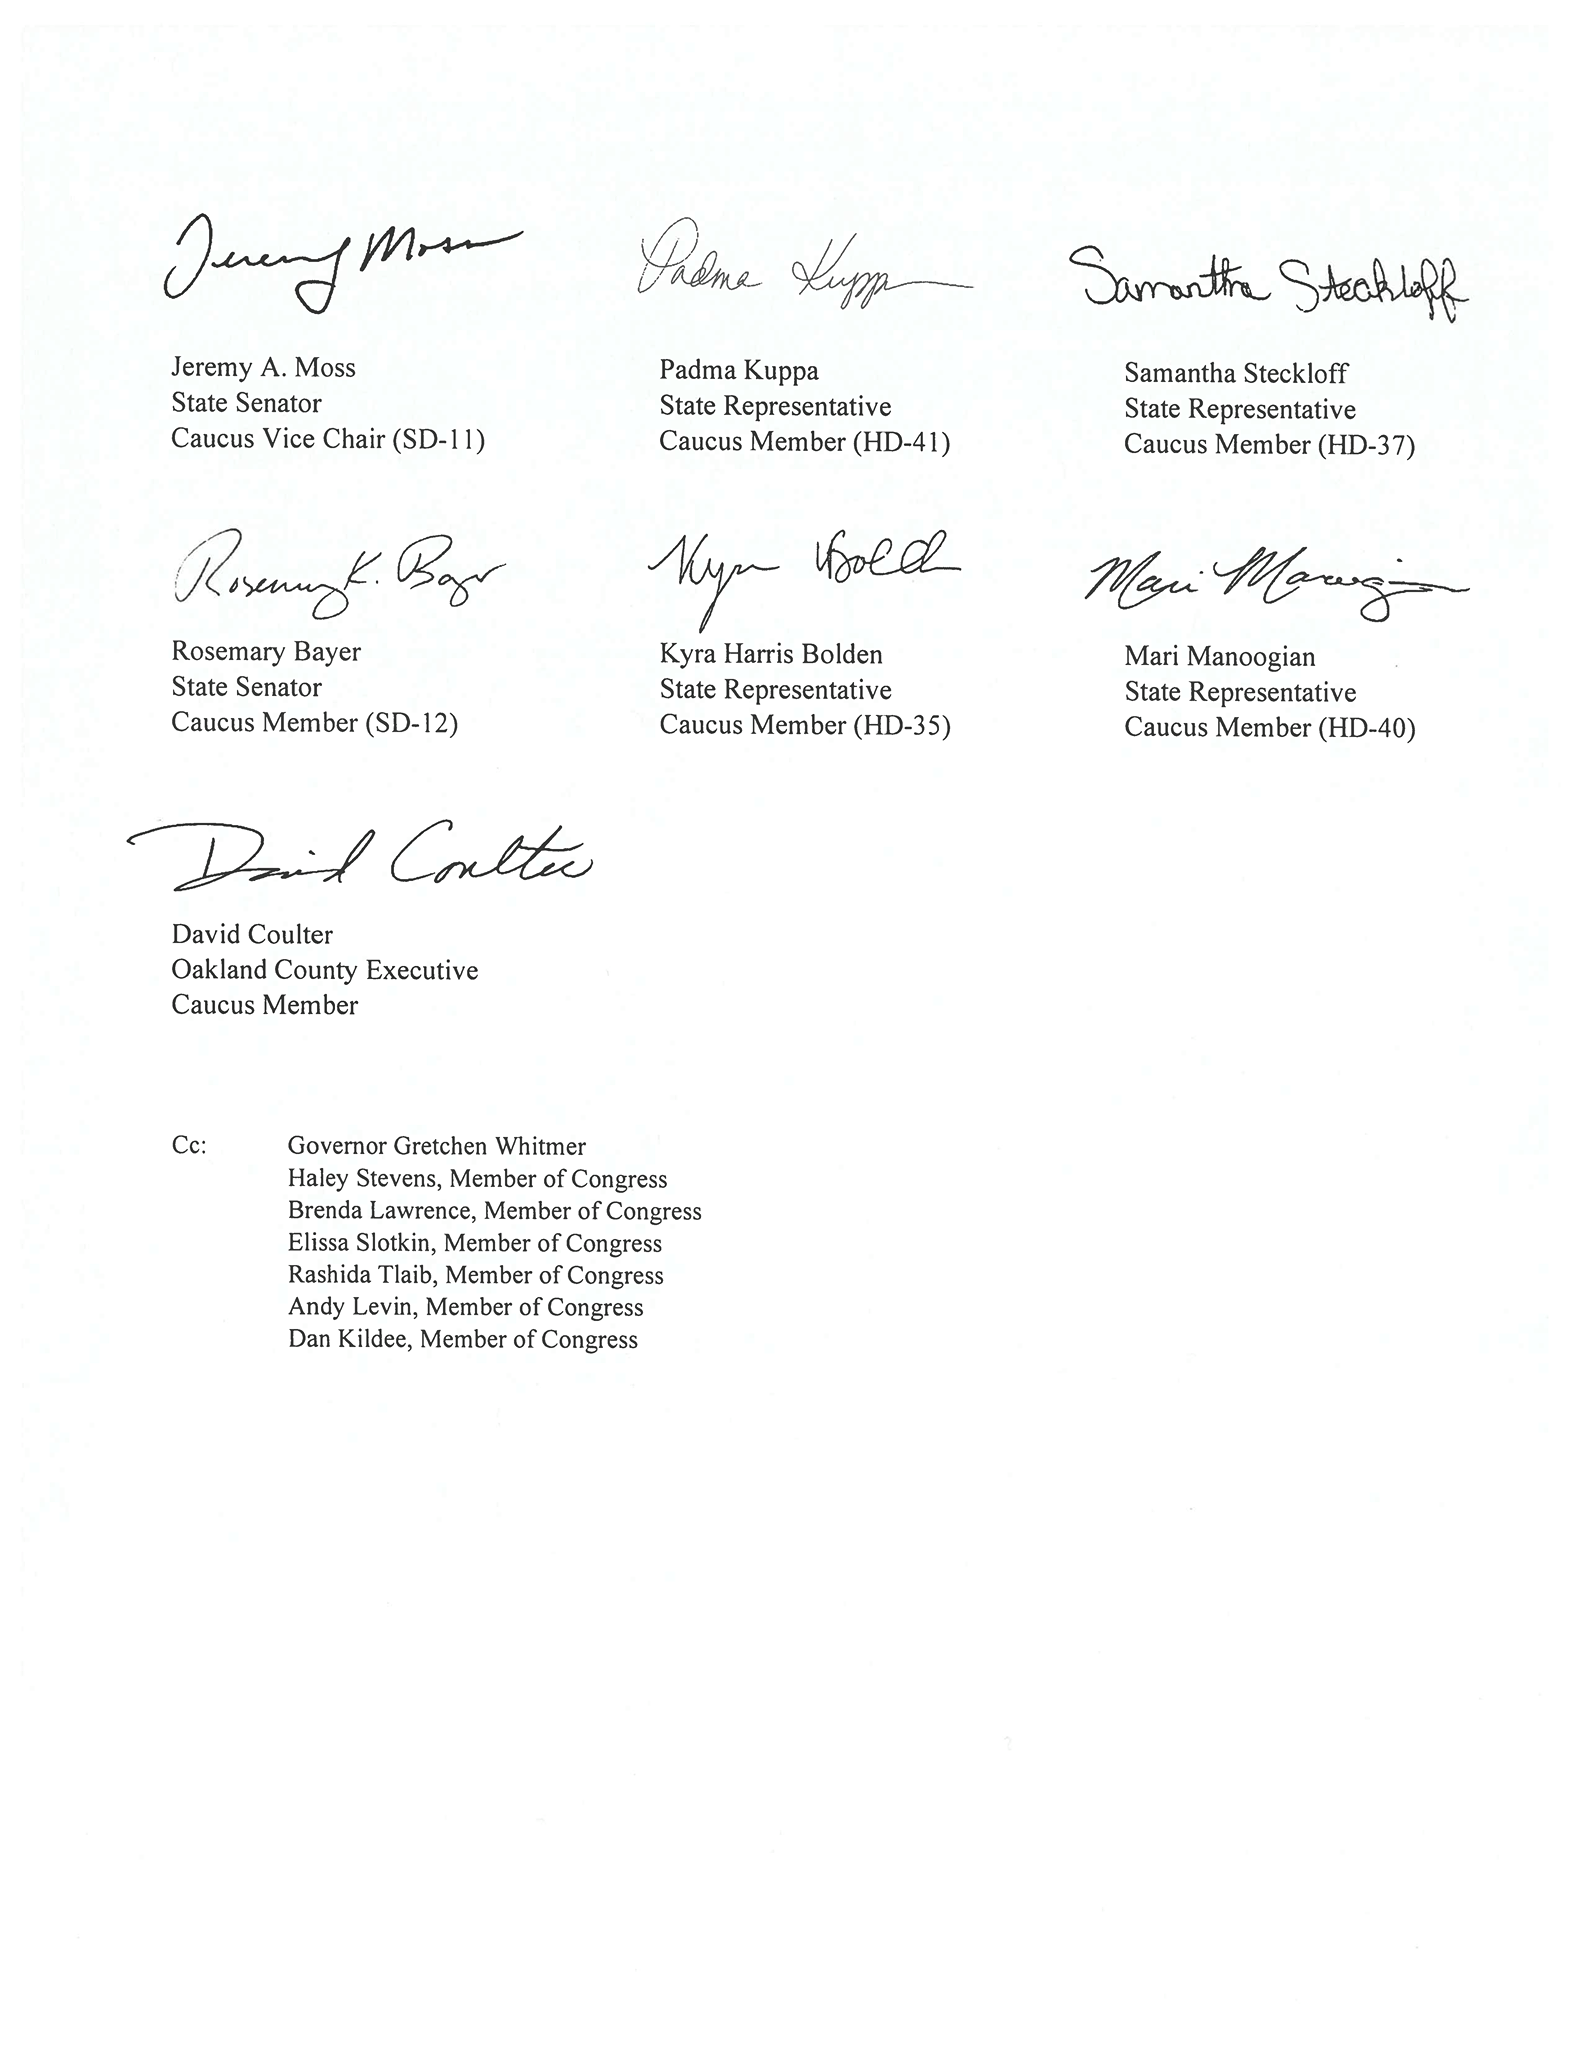 Jeremy Moss
Jeremy A. Moss
State Senator
Caucus Vice Chair (SD-11)
Padma Kuppa
Padma Kuppa
State Representative
Caucus Member (HD-41)
Samantha Steckloff
Samantha Steckloff
State Representative
Caucus Member (HD-37)
Rosemary K. Bayer
Rosemary Bayer
State Senator
Caucus Member (SD-12)
Kyra Bolden
Kyra Harris Bolden
State Representative
Caucus Member (HD-35)
Mari Manoogian
Mari Manoogian
State Representative
Caucus Member (HD-40)
David Coulter
David Coulter
Oakland County Executive
Caucus Member
Cc: Governor Gretchen Whitmer
Haley Stevens, Member of Congress
Brenda Lawrence, Member of Congress
Elissa Slotkin, Member of Congress
Rashida Tlaib, Member of Congress
Andy Levin, Member of Congress
Dan Kildee, Member of Congress